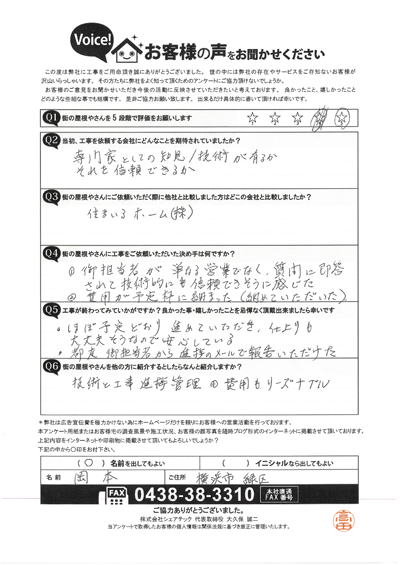 Voice!
お客様の声をお聞かせください
この度は弊社に工事をご用命頂き誠にありがとうございました。世の中には弊社の存在やサービスをご存知ないお客様が
沢山いらっしゃいます。その方たちに弊社をよく知って頂くためのアンケートにご協力頂けないでしょうか。
お客様のご意見をお聞かせいただき今後の活動に反映させていただきたいと考えております。良かったこと、嬉しかったこと
どのような些細な事でも結構です。是非ご協力お願い致します。出来るだけ具体的に書いて頂ければ幸いです。
Q1 街の屋根やさんを5段階で評価をお願いします ☆ ☆ ☆
Q2 当初、工事を依頼する会社にどんなことを期待されていましたか?
専門家としての知見/技術が有るか
それを信頼できるか
Q3 街の屋根やさんにご依頼いただく際に他社と比較しました方はどこの会社と比較しましたか?
住まいるホーム(株)
Q4 街の屋根やさんに工事をご依頼いただいた決め手は何ですか?
① 御担当者が単なる営業でなく、質問に即答
されて技術的にも信頼できそうに感じた
② 費用が予定枠に納まった(納めていただいた)
Q5 工事が終わってみていかがですか?良かった事・嬉しかったことを忌憚なく頂戴出来ましたら幸いです
・ほぼ予定どおり進めていただき、仕上りも
大丈夫そうなので安心している
・都度 御担当者から進捗のメールで報告いただけた
Q6 街の屋根やさんを他の方に紹介するとしたらなんと紹介しますか?
技術と工事進捗管理 費用もリーズナブル
＊弊社は広告宣伝費を極力かけない為にホームページだけを頼りにお客様への営業活動を行っております。
本アンケート用紙またはお客様宅の調査風景や施工状況、お客様の顔写真を随時ブログ形式のインターネットに掲載させて頂いております。
上記内容をインターネットや印刷物に掲載させて頂いてもよろしいでしょうか?
下記の中から○印をお付下さい。
(○)名前を出してもよい ( )イニシャルなら出してもよい
名前 岡本 ご住所 横浜市 緑区
FAX 0438-38-3310 本社直通 FAX番号
ご協力ありがとうございました。
株式会社シェアテック 代表取締役 大久保 誠二
当アンケートで取得したお客様の個人情報は関係法規に基づき厳正に管理いたします。